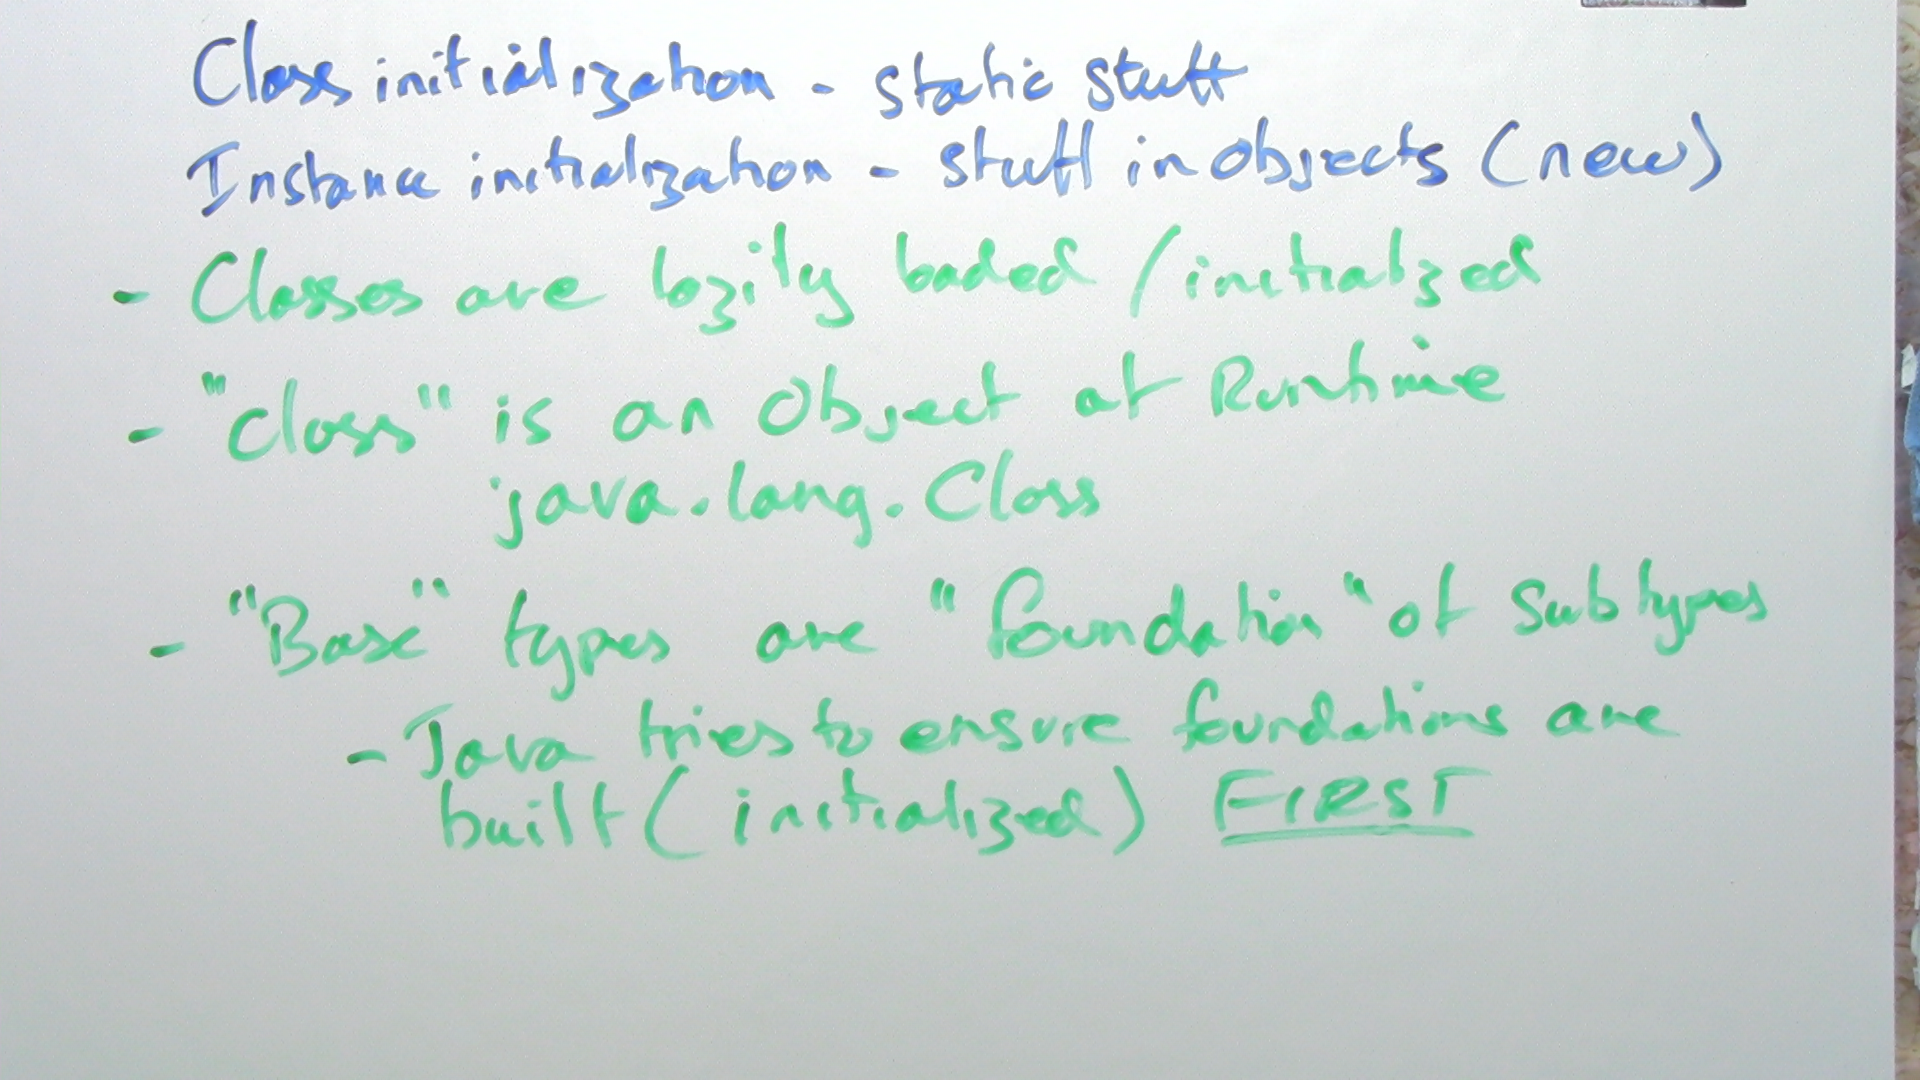 Class initialization - static stuff
Instance initialization - stuff in objects (new)
- Classes are lazily loaded / initialized
- "class" is an Object at Runtime
java.lang.Class
- "Base" types are "foundation" of subtypes
- Java tries to ensure foundations are
built (initialized) FIRST